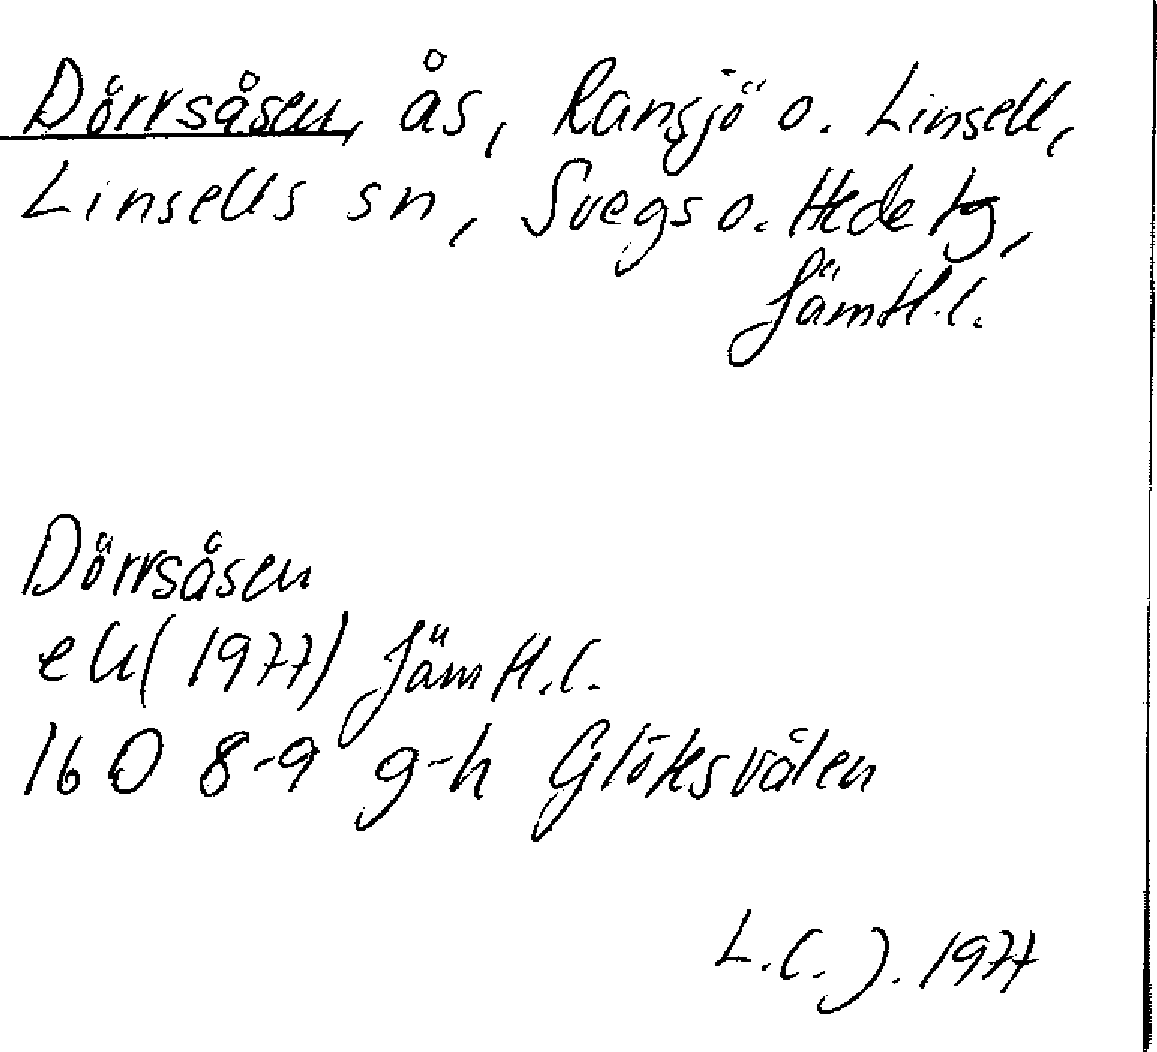 Dörrsåsen, ås, Ransjö o. Linsell,
Linsells sn, Svegs o. Hede tg,
Jämtl. l.
Dörrsåsen
ek (1977) Jämtl. l.
16 D 8-9 g-h Glöksvålen
L. C. J. 1977